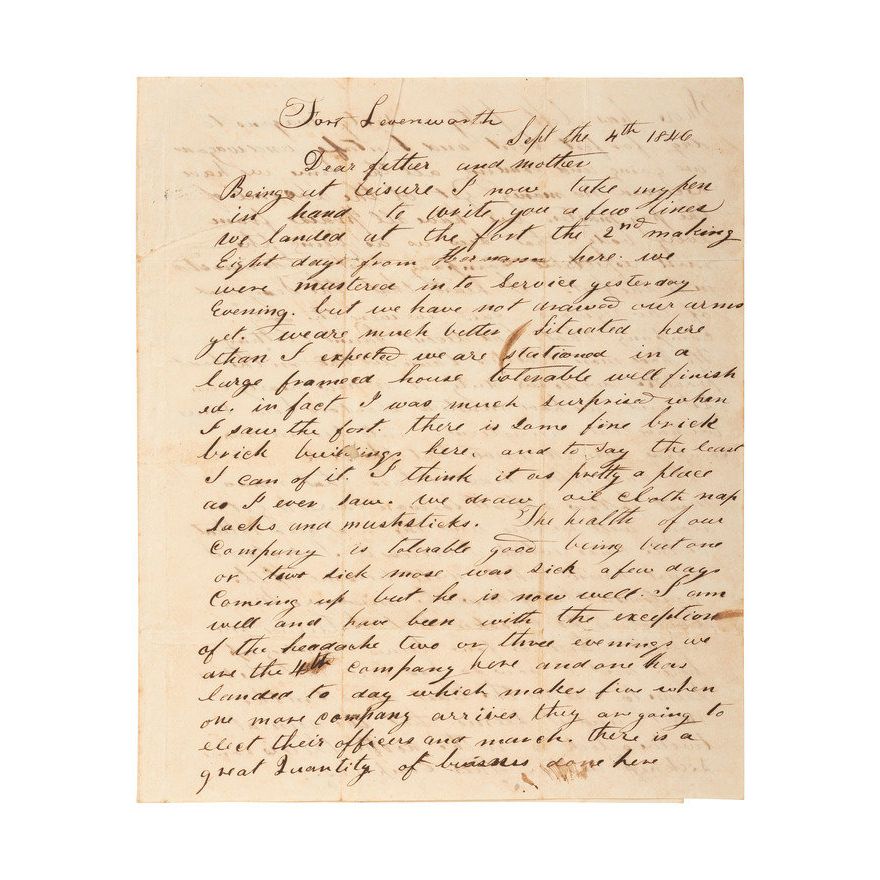 Fort Levenworth
Sept the 4th 1846
Dear father and mother
Being at leisure I now take my pen
in hand to write you a few lines
we landed at the fort the 2nd making
Eight days from Hermann here. we
were mustered in to Service yesterday
Evening. but we have not drawed our arms
yet. we are much better Situated here
than I expected we are stationed in a
large frameed house tolerable well finish
ed. in fact I was much surprised when
I saw the fort. there is some fine brick
brick buildings here. and to say the least
I can of it. I think it as pretty a place
as I ever saw. we draw oil cloth nap
sacks and mushsticks. The health of our
Company is tolerable good being but one
or two sick mose was sick a few days
Comeing up but he is now well. I am
well and have been with the exception
of the headache two or three evenings we
are the 4th Company here and one has
landed to day which makes five when
one more company arrives they are going to
elect their officers and march. there is a
great Quantity of buisnes done here